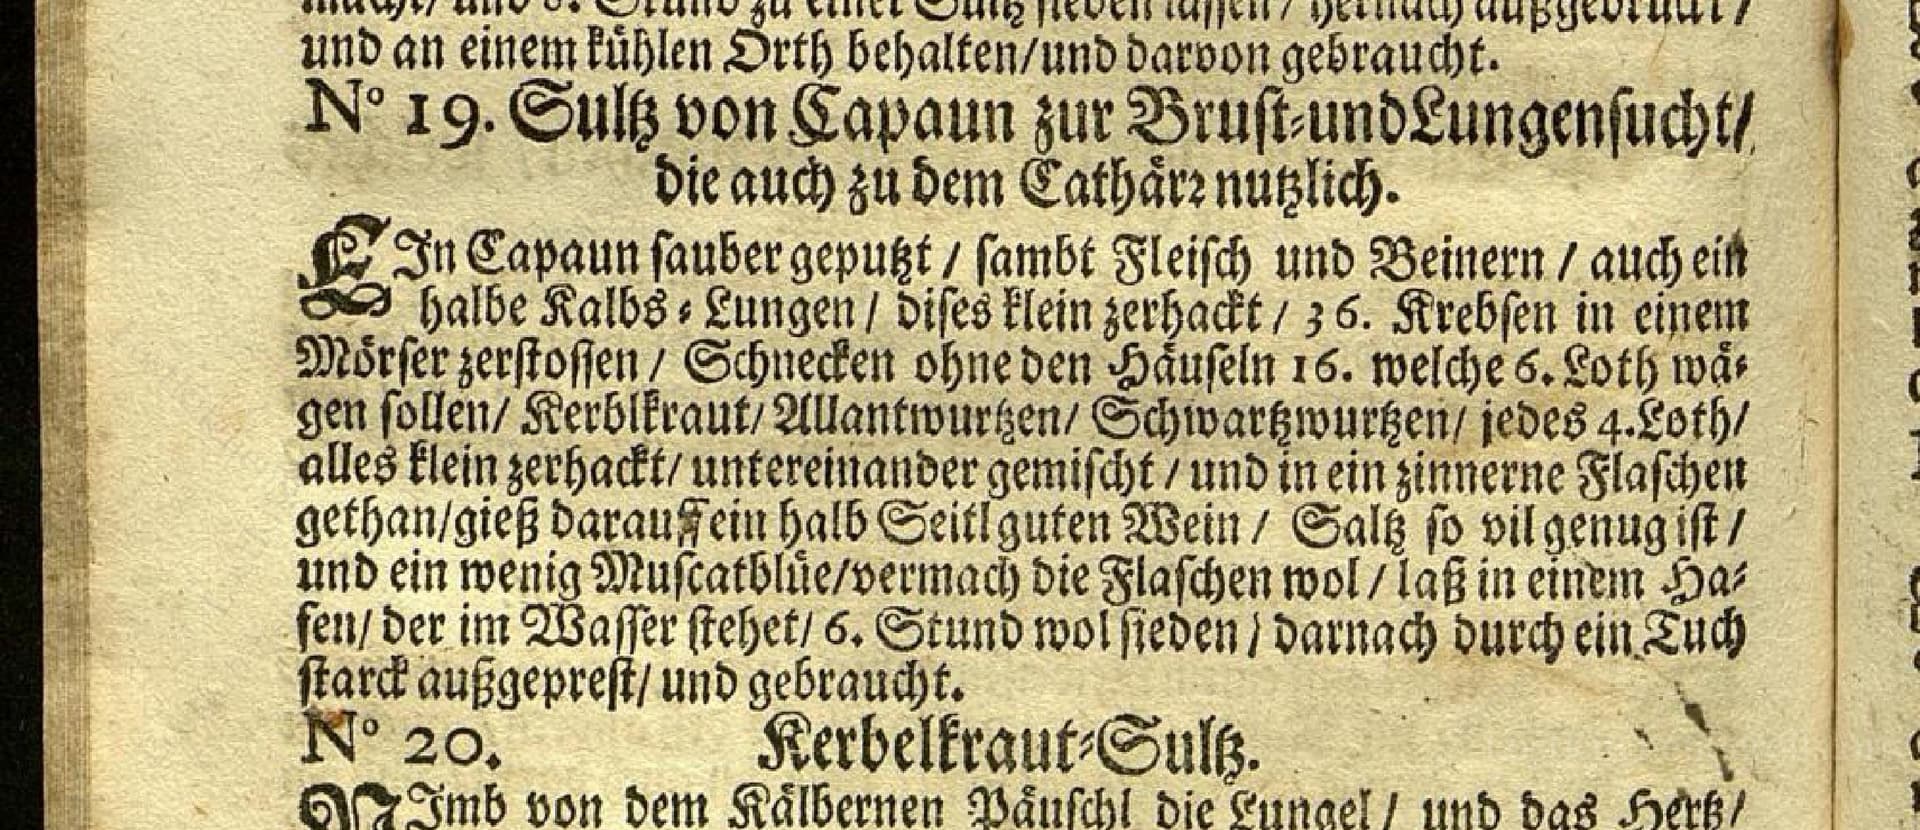 macht/ und 8. Stund zu einer Sultz sieden lassen/ hernach außgedruckt/
und an einem kühlen Orth behalten/und darvon gebraucht.
No 19. Sultz von Capaun zur Brust-und Lungensucht/
die auch zu dem Cathärr nutzlich.
EIn Capaun sauber geputzt / sambt Fleisch und Beinern / auch ein
halbe Kalbs-Lungen / dises klein zerhackt / 36. Krebsen in einem
Mörser zerstossen / Schnecken ohne den Häuseln 16. welche 6. Loth wä-
gen sollen/ Kerblkraut/ Allantwurtzen/ Schwartzwurtzen/ jedes 4. Loth/
alles klein zerhackt/ untereinander gemischt / und in ein zinnerne Flaschen
gethan/gieß darauff ein halb Seitl guten Wein / Saltz so vil genug ist /
und ein wenig Muscatblüe/vermach die Flaschen wol / laß in einem Ha-
fen/ der im Wasser stehet/ 6. Stund wol sieden / darnach durch ein Tuch
starck außgeprest/ und gebraucht.
No 20. Kerbelkraut-Sultz.
NImb von dem Kälbernen Päuschl die Lungel / und das Hertz/